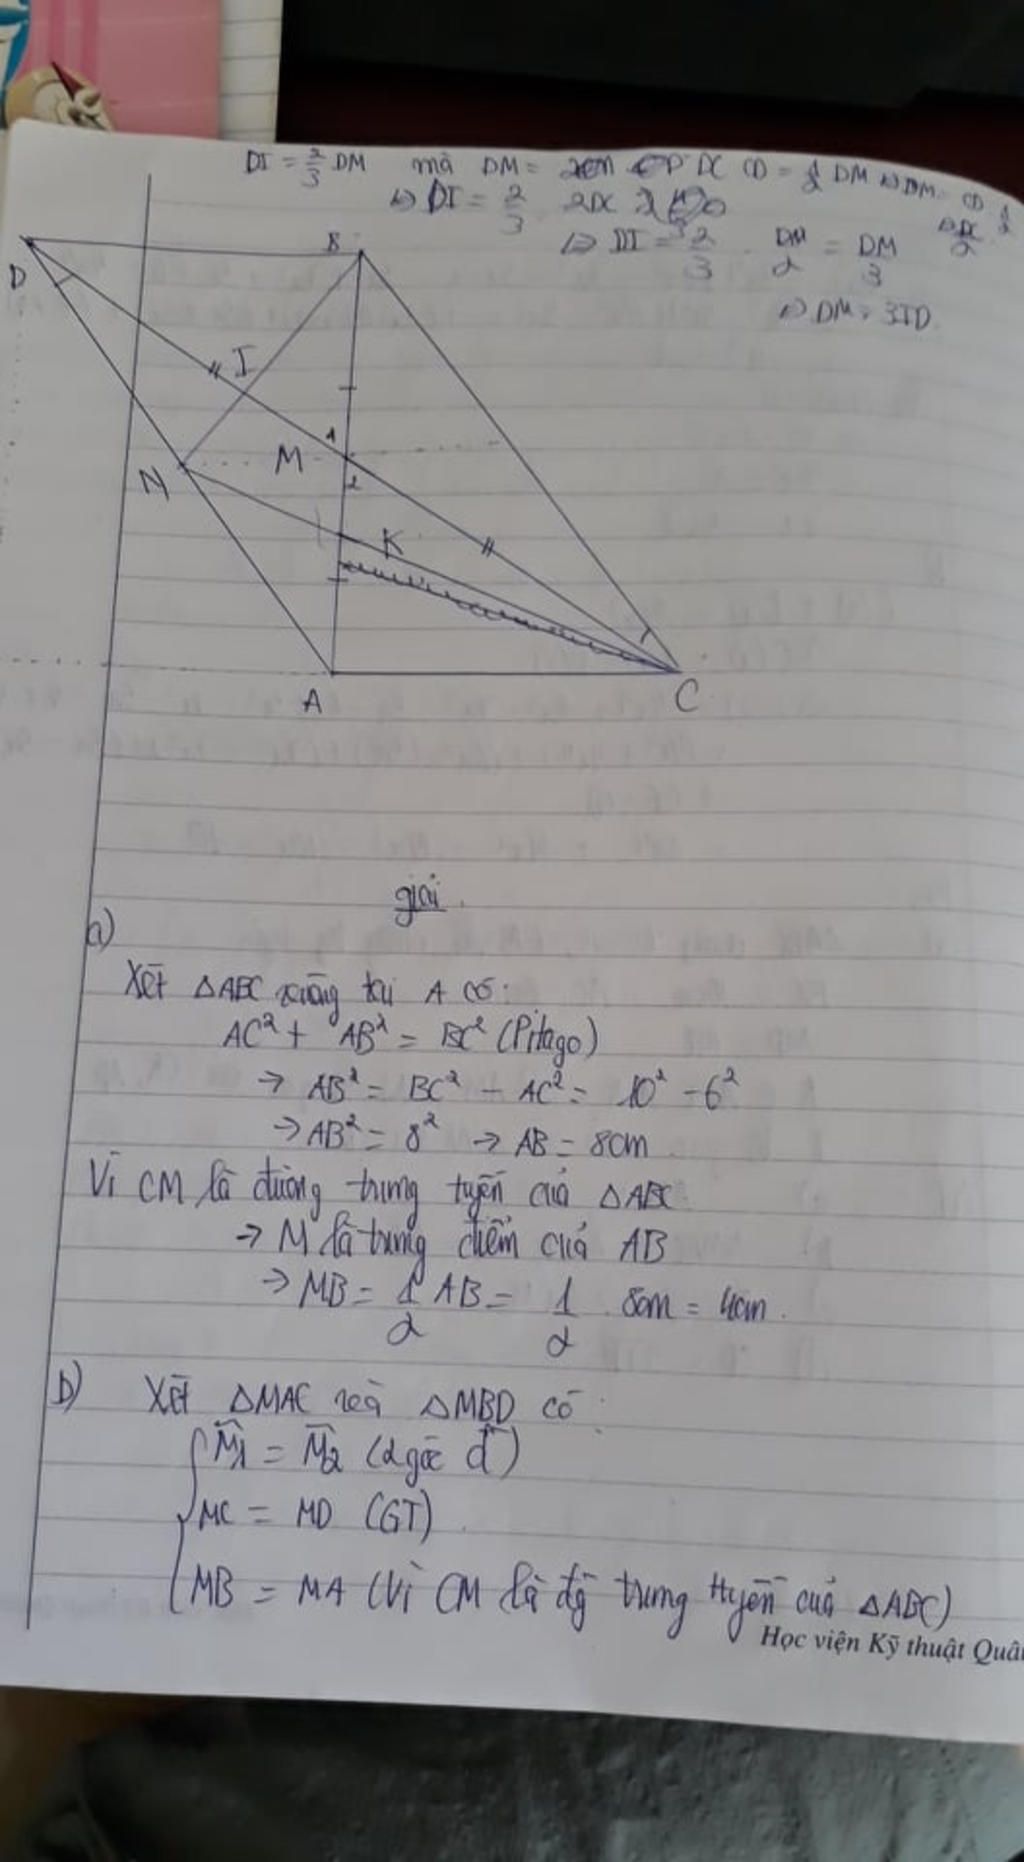 DI = 2/3 DM mà DM =
CD = 1/2 DM
=> DI = 2/3
=> DI = 2/3 . DM/2 = DM/3
=> DM = 3ID
D
B
I
1
M
N
2
K
A
C
giải.
a)
Xét △ABC vuông tại A có:
AC² + AB² = BC² (Pitago)
→ AB² = BC² - AC² = 10² - 6²
→ AB² = 8² → AB = 8cm
Vì CM là đường trung tuyến của △ABC
→ M là trung điểm của AB
→ MB = 1/2 AB = 1/2 . 8cm = 4cm.
b) Xét △MAC và △MBD có:
M̂1 = M̂2 (2 góc đ²)
MC = MD (GT)
MB = MA (Vì CM là đg trung tuyến của △ABC)
Học viện Kỹ thuật Quâ